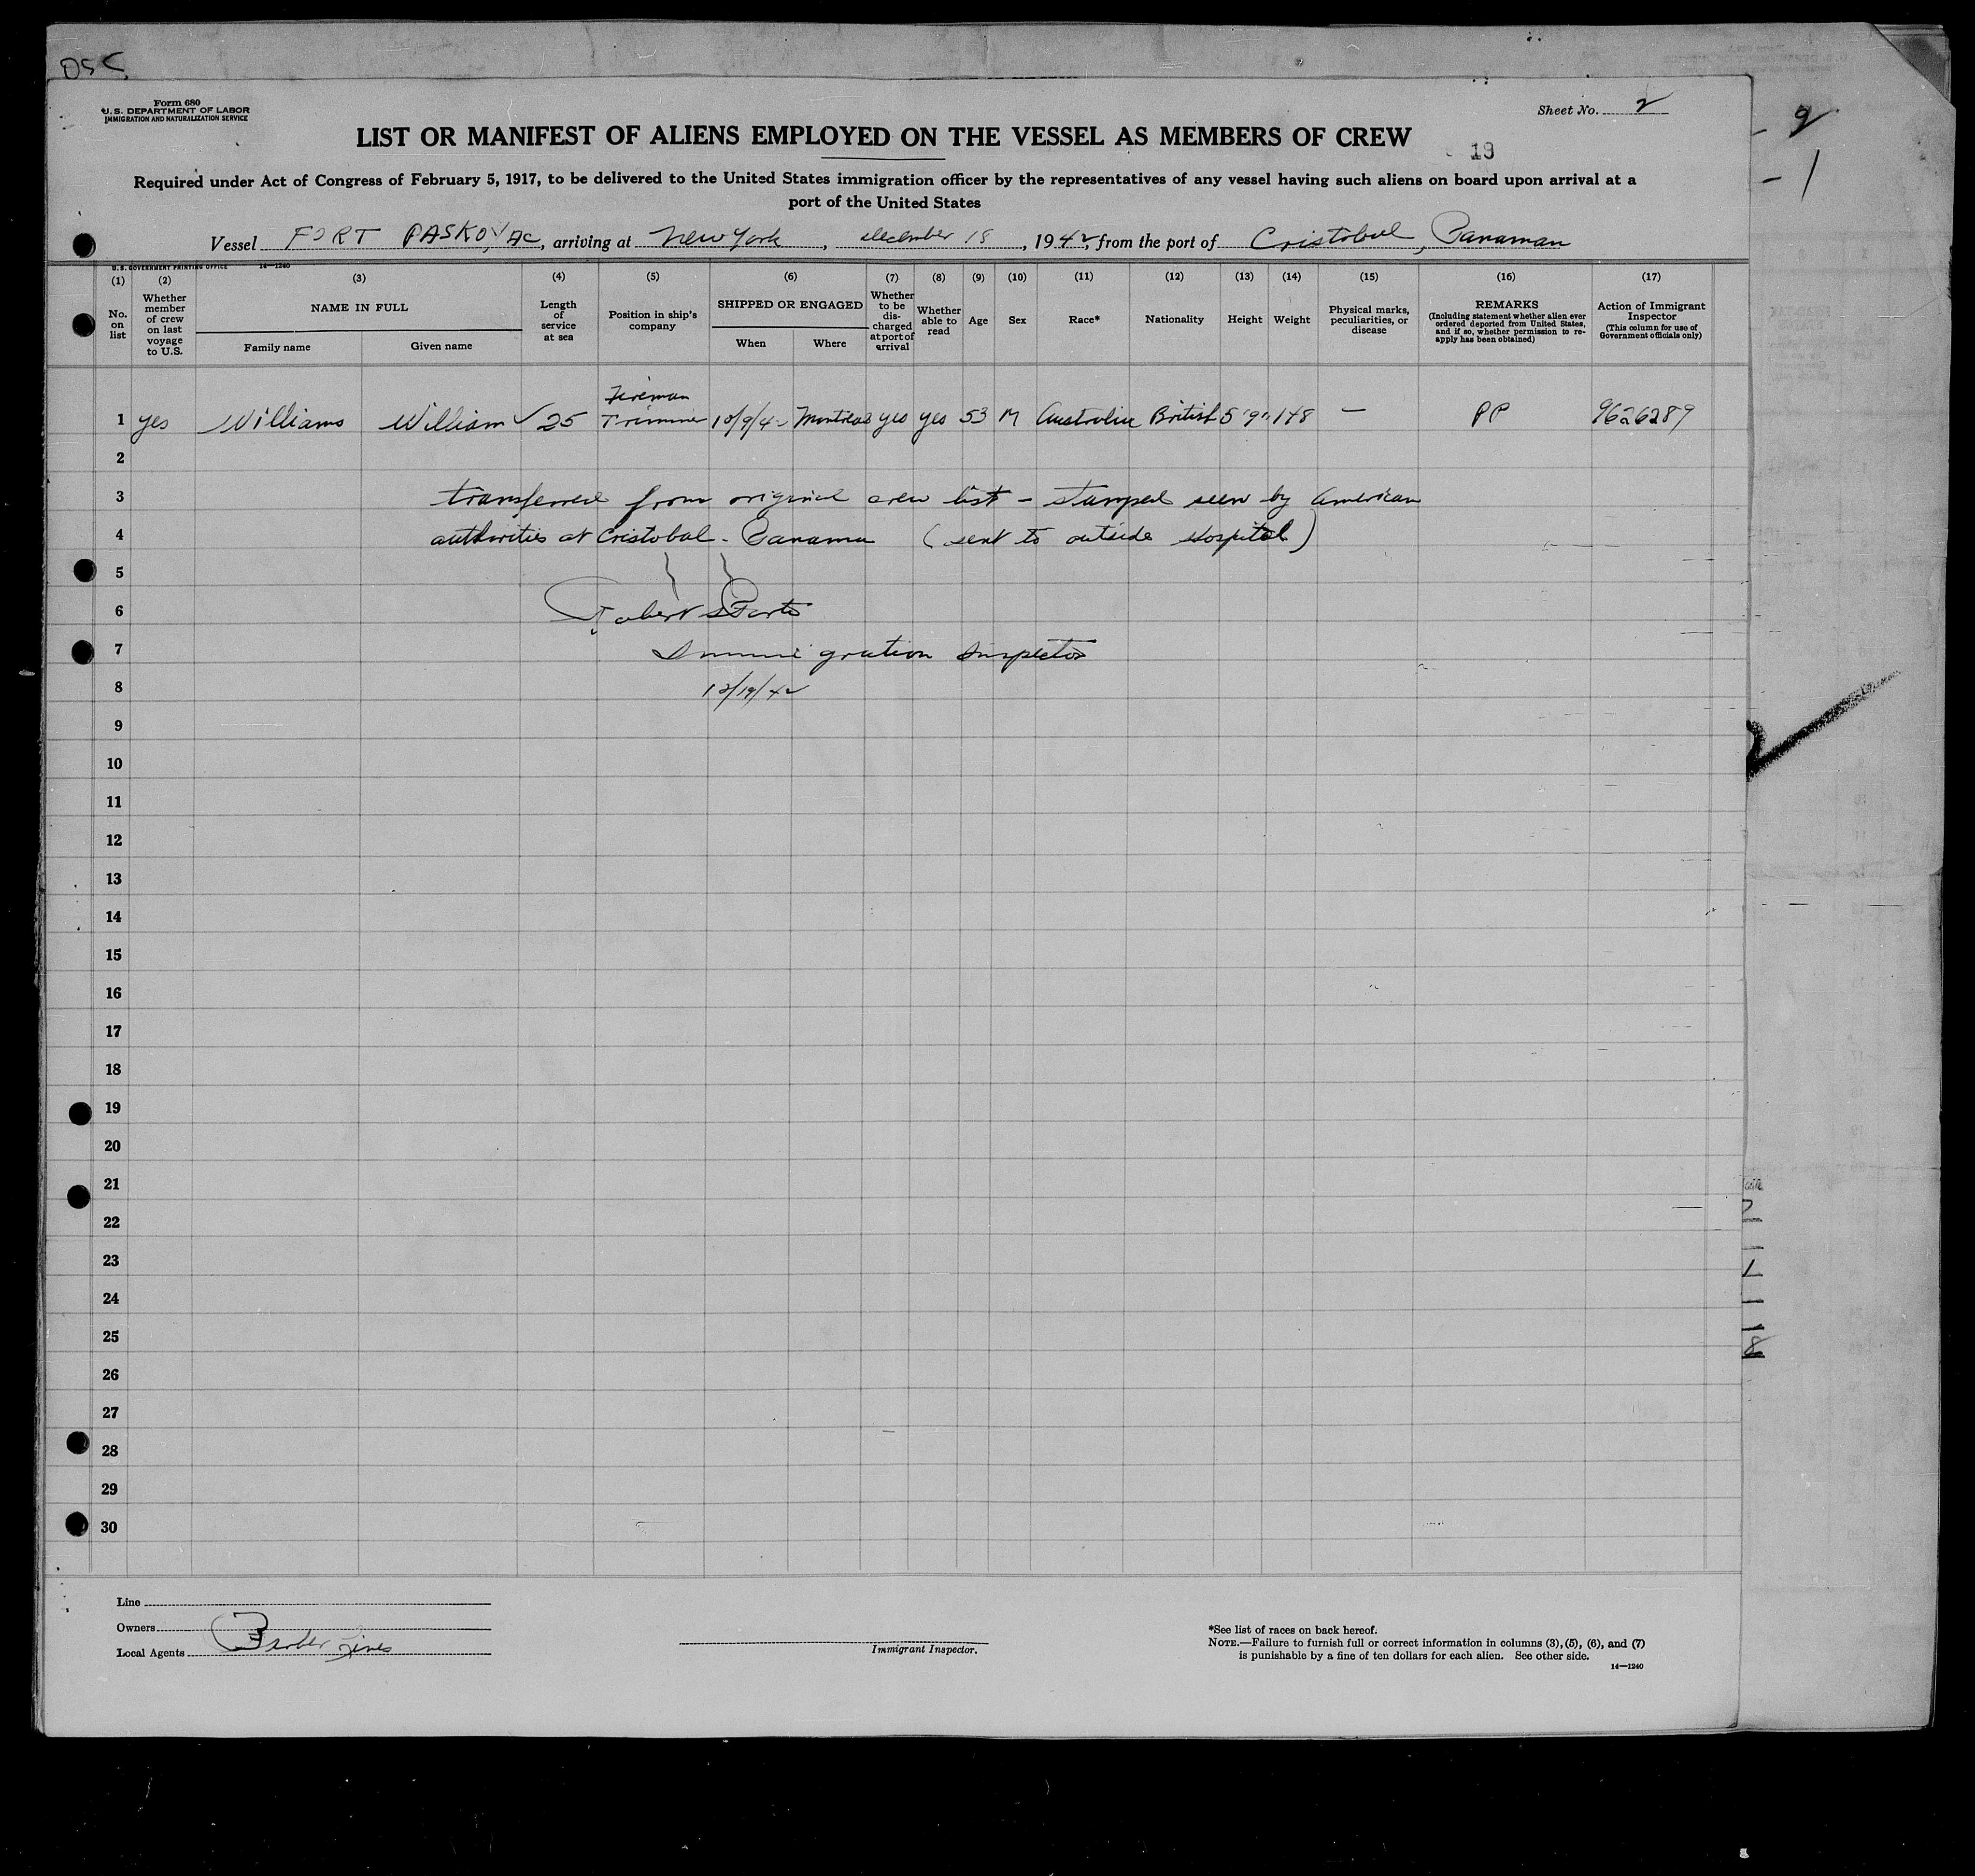 DSC
Form 680
U.S. DEPARTMENT OF LABOR
IMMIGRATION AND NATURALIZATION SERVICE
Sheet No. 2
LIST OR MANIFEST OF ALIENS EMPLOYED ON THE VESSEL AS MEMBERS OF CREW
19
Required under Act of Congress of February 5, 1917, to be delivered to the United States immigration officer by the representatives of any vessel having such aliens on board upon arrival at a
port of the United States
Vessel FORT PASKOYAC, arriving at New York, December 18, 1942, from the port of Cristobal, Panaman
U.S. GOVERNMENT PRINTING OFFICE 14—1240
(1) (2) (3) (4) (5) (6) (7) (8) (9) (10) (11) (12) (13) (14) (15) (16) (17)
No. on list
Whether member of crew on last voyage to U.S.
NAME IN FULL
Family name
Given name
Length of service at sea
Position in ship's company
SHIPPED OR ENGAGED
When
Where
Whether to be discharged at port of arrival
Whether able to read
Age
Sex
Race*
Nationality
Height
Weight
Physical marks, peculiarities, or disease
REMARKS
(Including statement whether alien ever ordered deported from United States, and if so, whether permission to reapply has been obtained)
Action of Immigrant Inspector
(This column for use of Government officials only)
Fireman
1 yes Williams William √ 25 Trimmer 10/9/42 Montreal yes yes 53 M Australian British 5'9" 148 — PP 9626289
2
3 transferred from original crew list - stamped seen by American
4 authorities at Cristobal - Panama (sent to outside Hospital)
5
6 Robert
7 Immigration Inspector
8 12/19/42
9
10
11
12
13
14
15
16
17
18
19
20
21
22
23
24
25
26
27
28
29
30
Line
Owners
Local Agents Barber Lines
Immigrant Inspector.
*See list of races on back hereof.
NOTE.—Failure to furnish full or correct information in columns (3), (5), (6), and (7)
is punishable by a fine of ten dollars for each alien. See other side.
14—1240